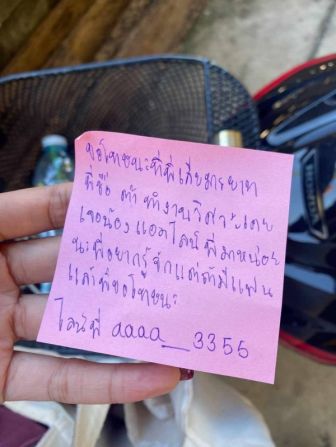 ขอโทษนะที่พี่เสียมารยาท
พี่ชื่อ ต้า ทำงานวิศวะ
เจอน้อง แอดไลน์ พี่มาหน่อย
นะพี่อยากรู้จักแต่ถ้ามีแฟน
แล้วพี่ขอโทษนะ
ไลน์พี่ aaaa_3355